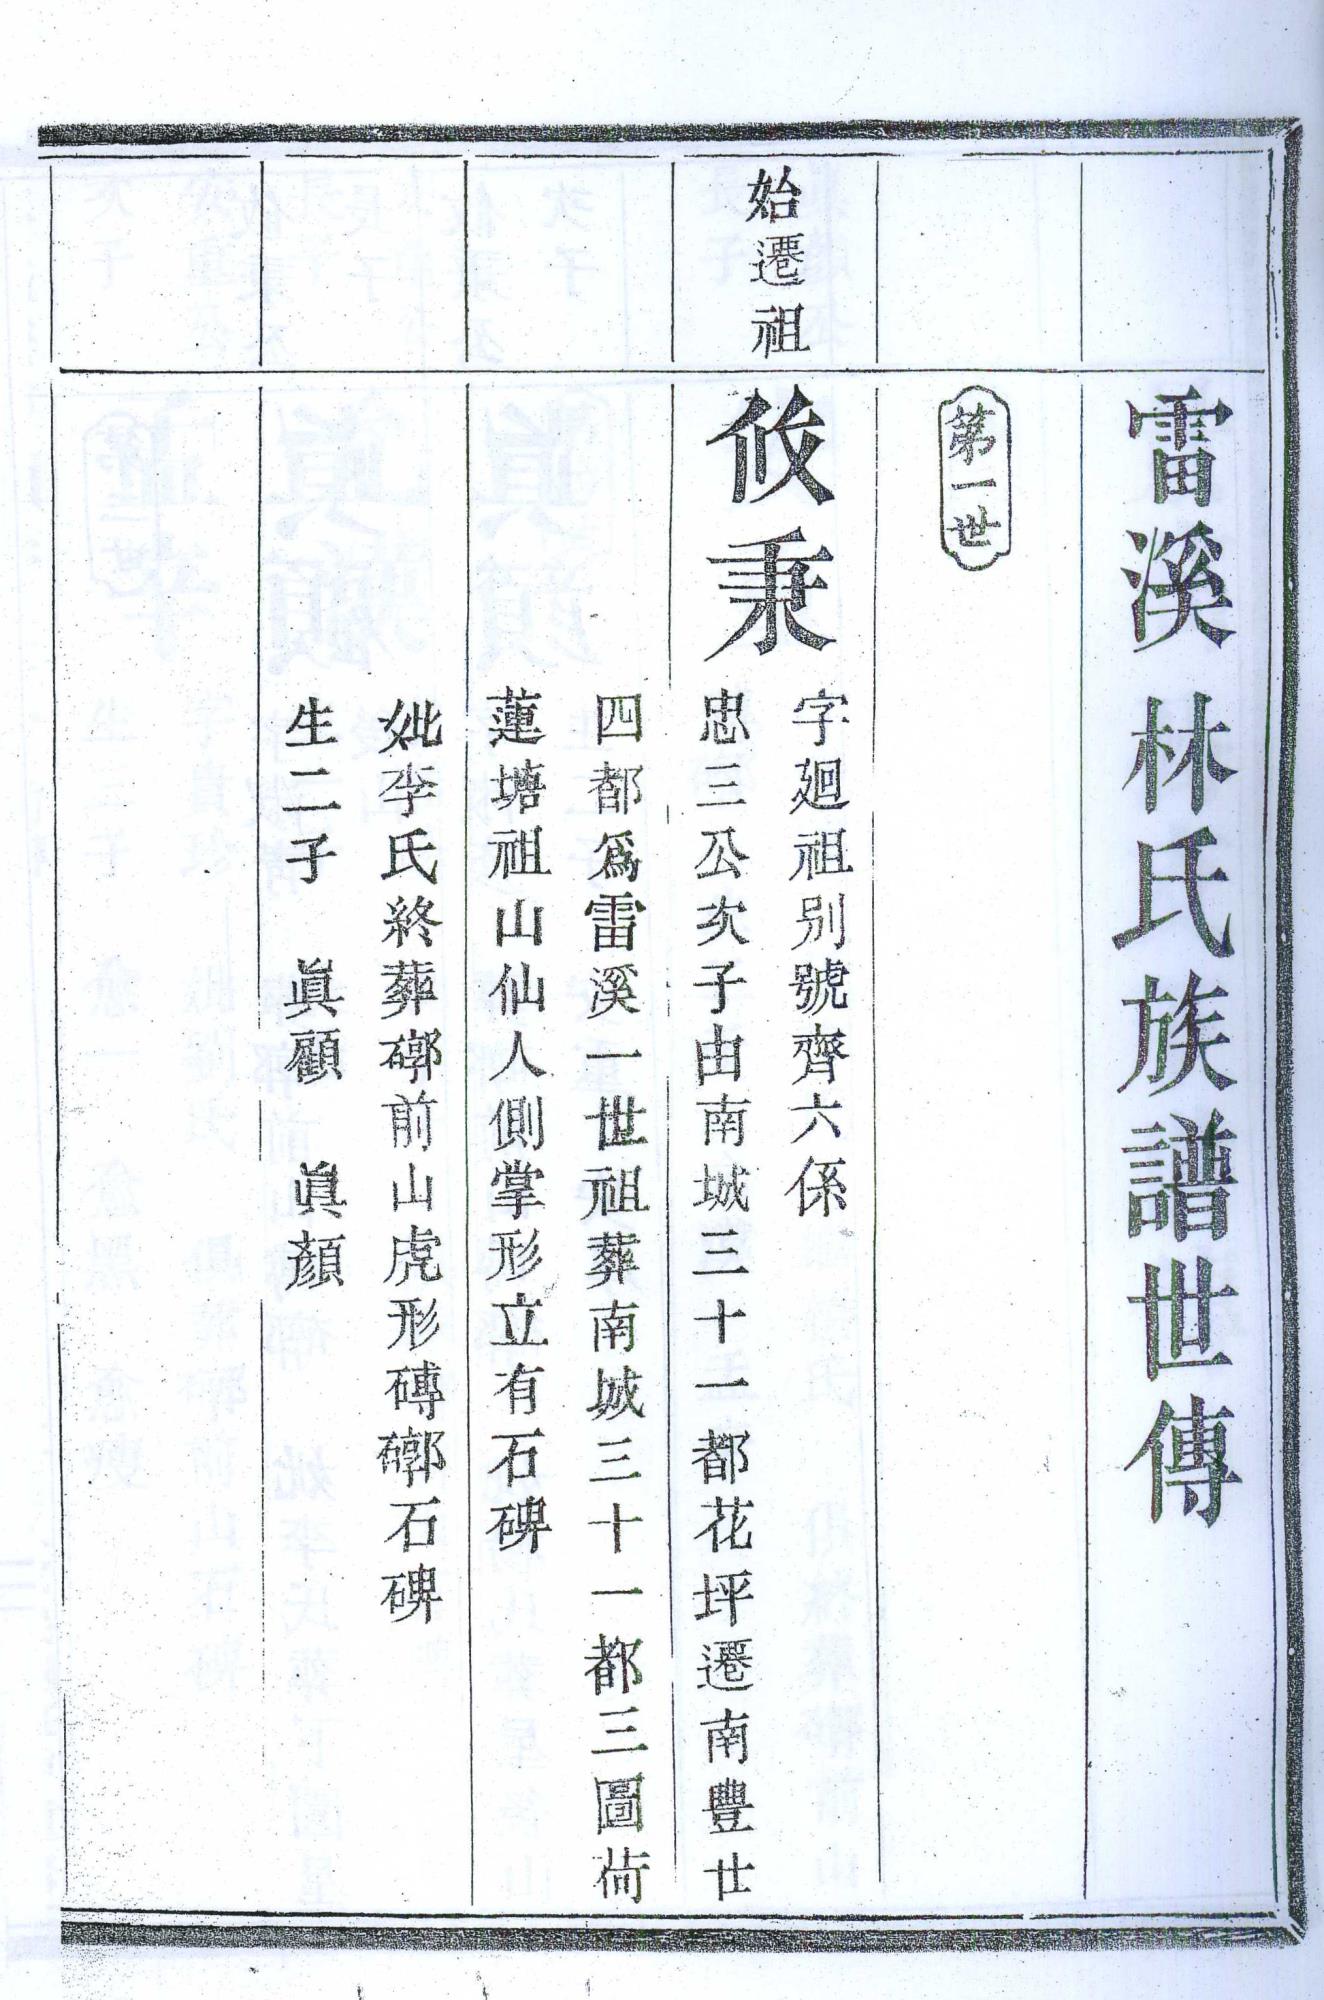 雷溪林氏族譜世傳
第一世
始遷祖
攸秉
字廻祖别號齊六係
忠三公次子由南城三十一都花坪遷南豐廿
四都爲雷溪一世祖葬南城三十一都三圖荷
蓮塘祖山仙人側掌形立有石碑
妣李氏終葬𥕖前山虎形磚𥕖石碑
生二子 眞顧 眞顏